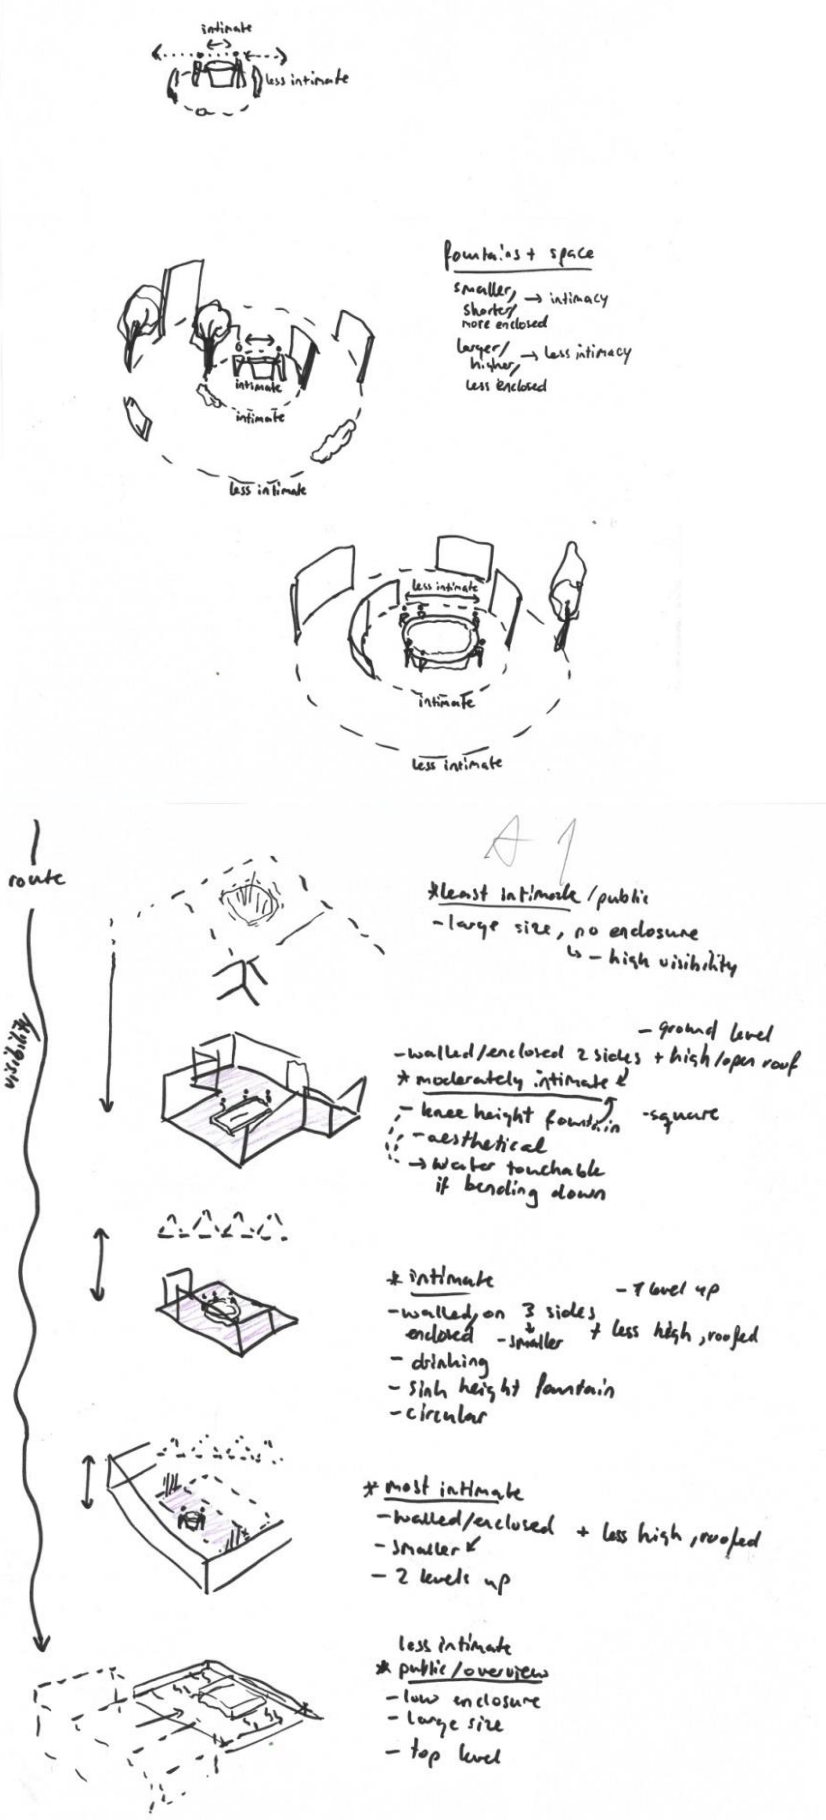 intimate
less intimate
fountains + space
smaller,
shorter/ → intimacy
more enclosed
larger/
higher, → less intimacy
less enclosed
intimate
intimate
less intimate
less intimate
intimate
less intimate
A1
route
visibility
*least intimate/public
- large size, no enclosure
↳ - high visibility
- ground level
- walled/enclosed 2 sides + high/open roof
* moderately intimate
- knee height fountain - square
- aesthetical
→ water touchable
if bending down
* intimate - 1 level up
- walled, on 3 sides
enclosed - smaller + less high, roofed
- drinking
- sink height fountain
- circular
* most intimate
- walled/enclosed + less high, roofed
- smaller
- 2 levels up
less intimate
* public/overview
- low enclosure
- large size
- top level